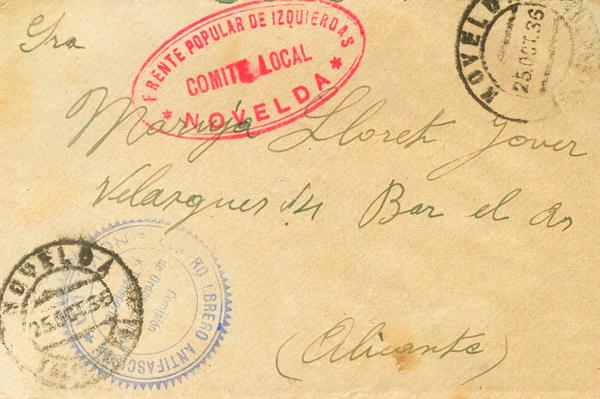 FRENTE POPULAR DE IZQUIERDAS
COMITÉ LOCAL
* NOVELDA *
NOVELDA
25.OCT.36
Sra
Maruja Lloret Jover
Velasques 14 Bar el As
(Alicante)
NOVELDA
25.OCT.36
OBRERO ANTIFASCISTA
Comisión
de Orden